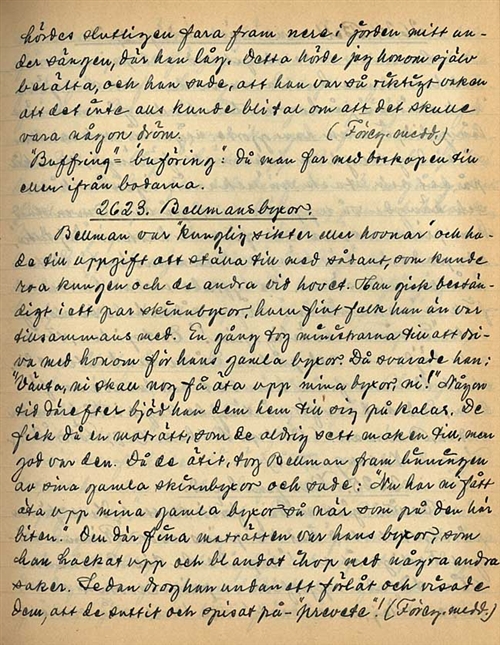 hördes slutligen fara fram nere i jorden mitt un-
der sängen, där han låg. Detta hörde jag honom själv
berätta, och han sade, att han var så riktigt vaken
att det inte alls kunde bli tal om att det skulle
vara någon dröm. (Föreg. medd.)
"Buffring" = "buföring": då man far med boskapen till
eller ifrån bodarna.
2623. Bellmansbyxor.
Bellman var "kunglig sikter eller hovnar" och ha-
de till uppgift att ställa till med sådant, som kunde
roa kungen och de andra vid hovet. Han gick bestän-
digt i ett par skinnbyxor, huru fint folk han än var
tillsammans med. En gång tog ministrarna till att dri-
va med honom för hans gamla byxor. Då svarade han:
"Vänta, ni skall nog få äta upp mina byxor, ni!" Någon
tid därefter bjöd han dem hem till sig på kalas. De
fick då en maträtt, som de aldrig sett maken till, men
god var den. Då de ätit, tog Bellman fram linningen
av sina gamla skinnbyxor och sade: "Nu har ni fått
äta upp mina gamla byxor så när som på den här
biten." Den där fina maträtten var hans byxor, som
han hackat upp och blandat ihop med några andra
saker. Sedan drog han undan ett förlåt och visade
dem, att de suttit och spisat på - "prevete"! (Föreg. medd.)